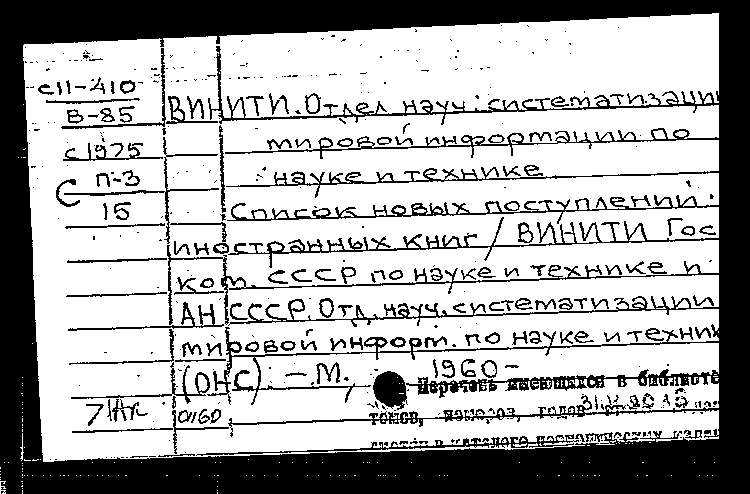 с11-410
В-85
с1975
П-3
С
15
ВИНИТИ. Отдел науч. систематизации
мировой информации по
науке и технике
Список новых поступлений
иностранных книг / ВИНИТИ Гос
ком. СССР по науке и технике и
АН СССР. Отд. науч. систематизации
мировой информ. по науке и техник
(ОНС). – М., 1960-
Перечень имеющихся в библиоте
томов, номеров, годов